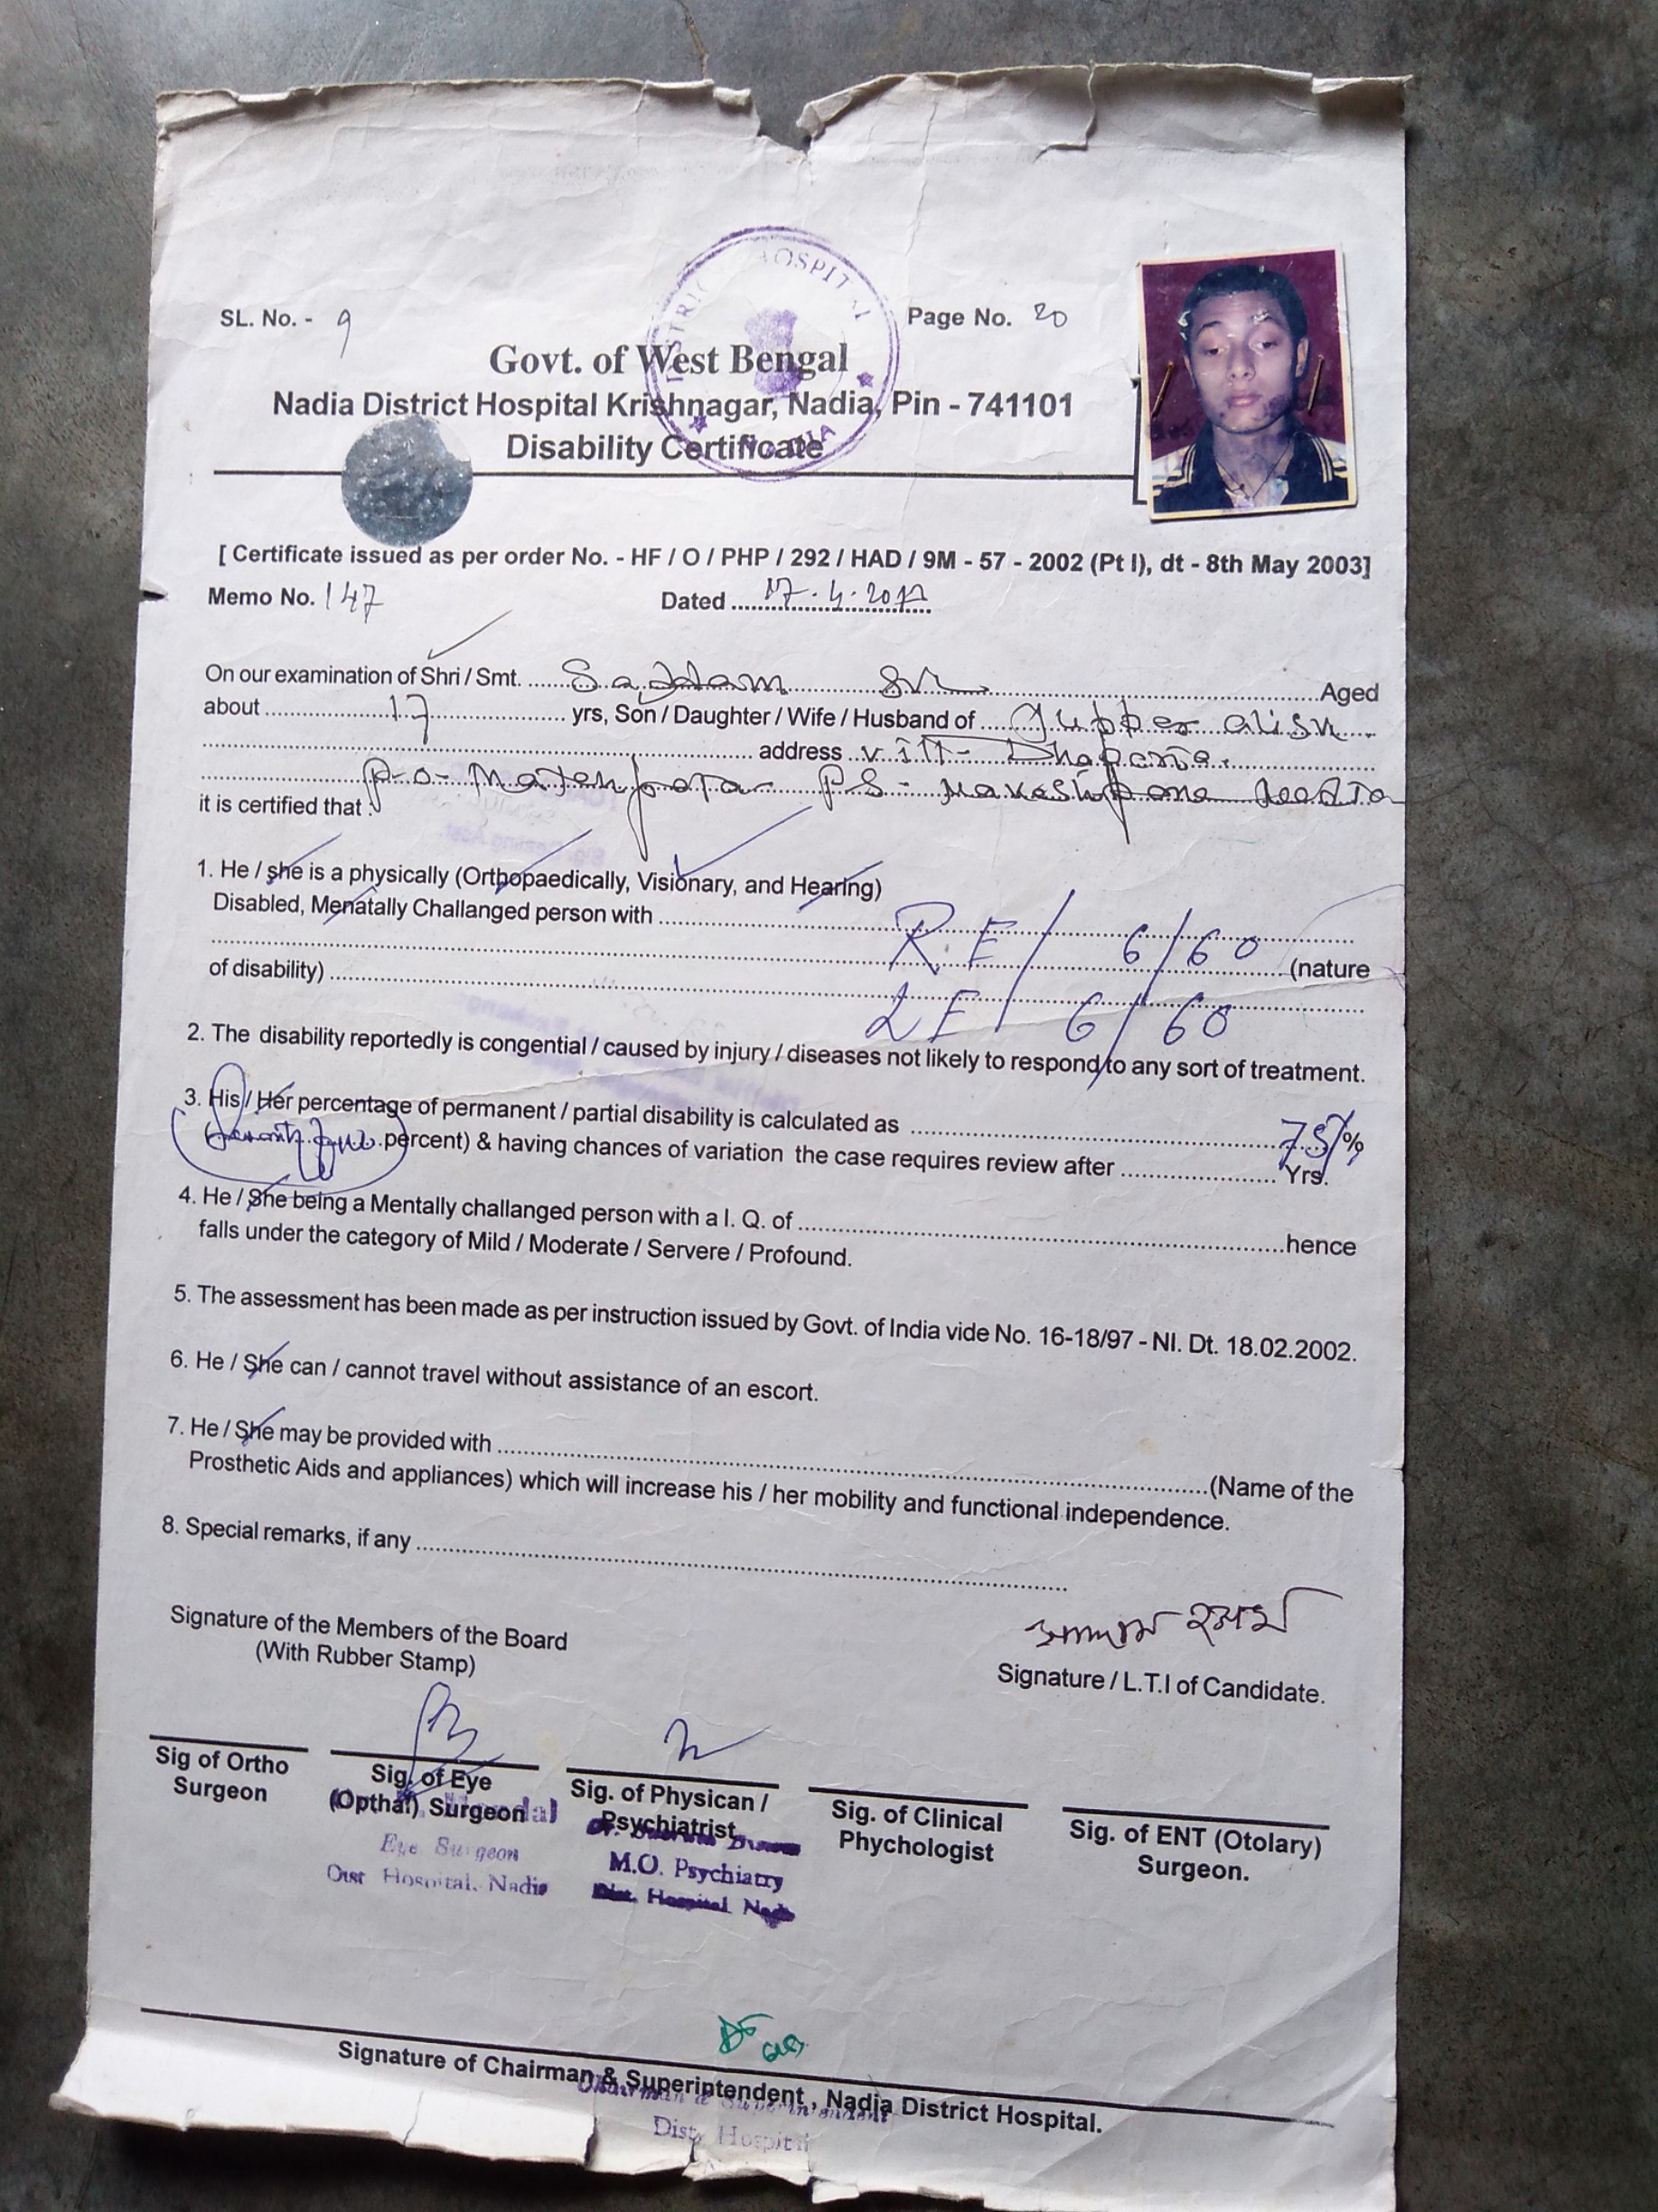 SL. No. - 9
Page No. 20
DISTRICT HOSPITAL
NADIA
Govt. of West Bengal
Nadia District Hospital Krishnagar, Nadia, Pin - 741101
Disability Certificate
[ Certificate issued as per order No. - HF / O / PHP / 292 / HAD / 9M - 57 - 2002 (Pt I), dt - 8th May 2003]
Memo No. 147 Dated 17.4.20
On our examination of Shri / Smt. Saddam Aged
about 17 yrs, Son / Daughter / Wife / Husband of
address Vill-
P.O- P.S-
it is certified that :
1. He / she is a physically (Orthopaedically, Visionary, and Hearing)
Disabled, Menatally Challanged person with RE / 6/60
(nature
of disability) LE / 6/60
2. The disability reportedly is congential / caused by injury / diseases not likely to respond to any sort of treatment.
3. His / Her percentage of permanent / partial disability is calculated as 75%
( percent) & having chances of variation the case requires review after Yrs.
4. He / She being a Mentally challanged person with a I. Q. of hence
falls under the category of Mild / Moderate / Servere / Profound.
5. The assessment has been made as per instruction issued by Govt. of India vide No. 16-18/97 - NI. Dt. 18.02.2002.
6. He / She can / cannot travel without assistance of an escort.
7. He / She may be provided with (Name of the
Prosthetic Aids and appliances) which will increase his / her mobility and functional independence.
8. Special remarks, if any
Signature of the Members of the Board
(With Rubber Stamp)
Signature / L.T.I of Candidate.
Sig of Ortho
Surgeon
Sig. of Eye
(Opthal) Surgeon
Eye Surgeon
Dist Hospital, Nadia
Sig. of Physican /
Psychiatrist
M.O. Psychiatry
Dist. Hospital Nadia
Sig. of Clinical
Phychologist
Sig. of ENT (Otolary)
Surgeon.
Signature of Chairman & Superintendent , Nadia District Hospital.
Chairman & Superintendent
Dist. Hospital